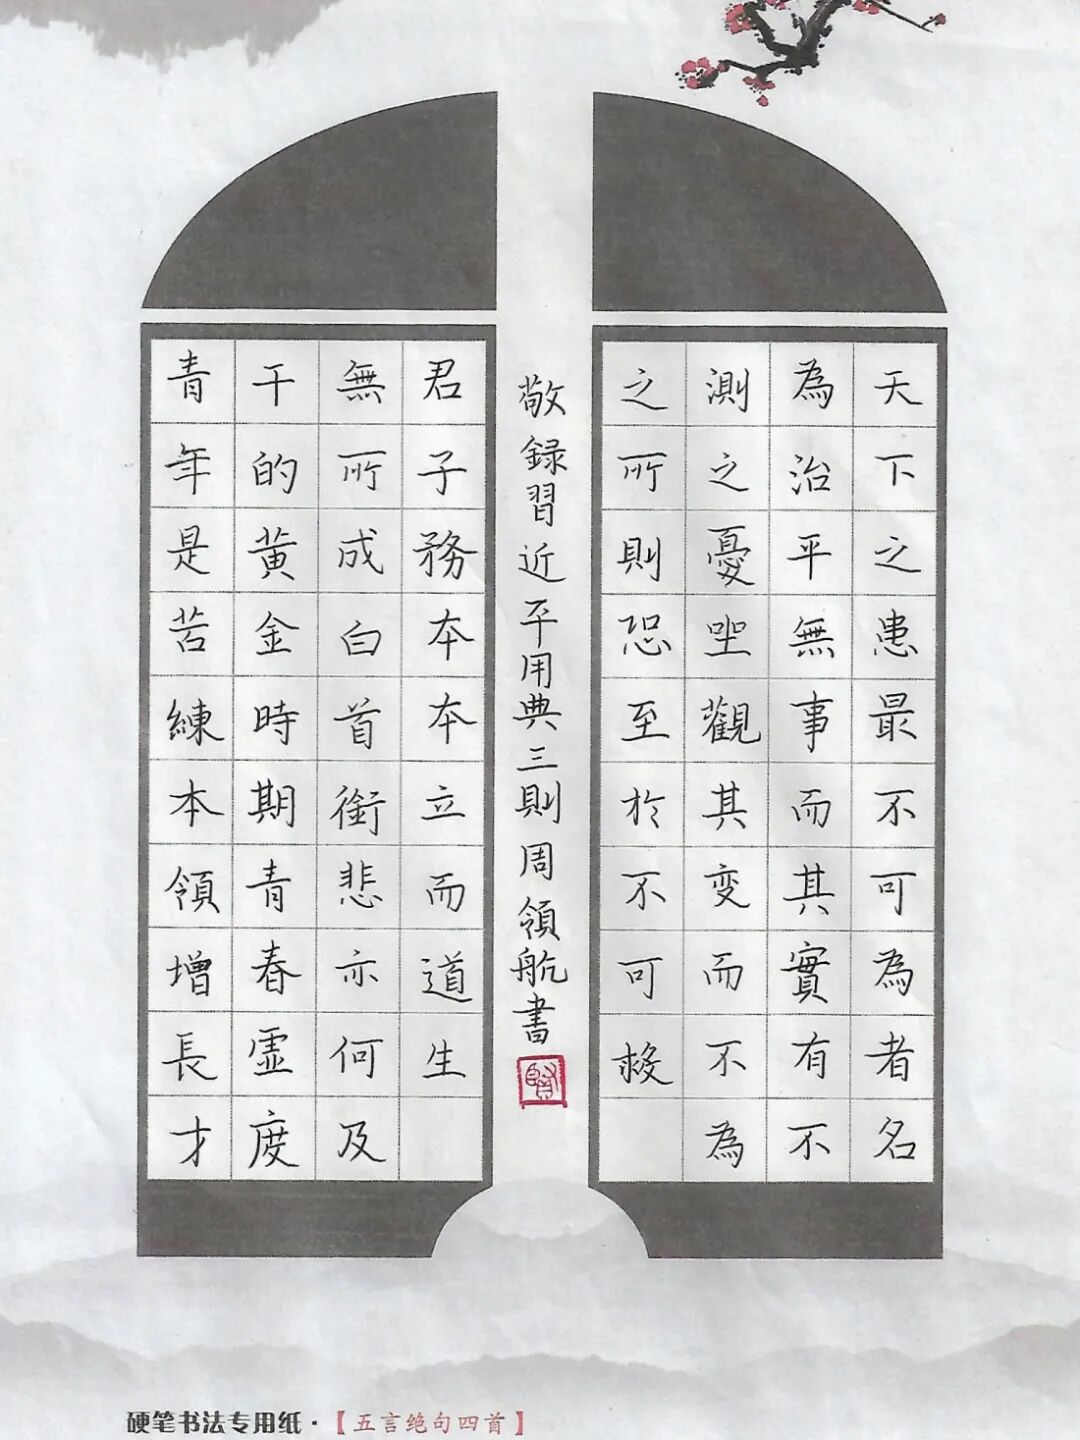 天下之患最不可為者名
為治平無事而其實有不
測之憂坐觀其变而不為
之所則恐至於不可救
敬録習近平用典三則周領航書
賢
君子務本本立而道生
無所成白首銜悲亦何及
干的黄金時期青春虛度
青年是苦練本領增長才
硬笔书法专用纸·【五言绝句四首】